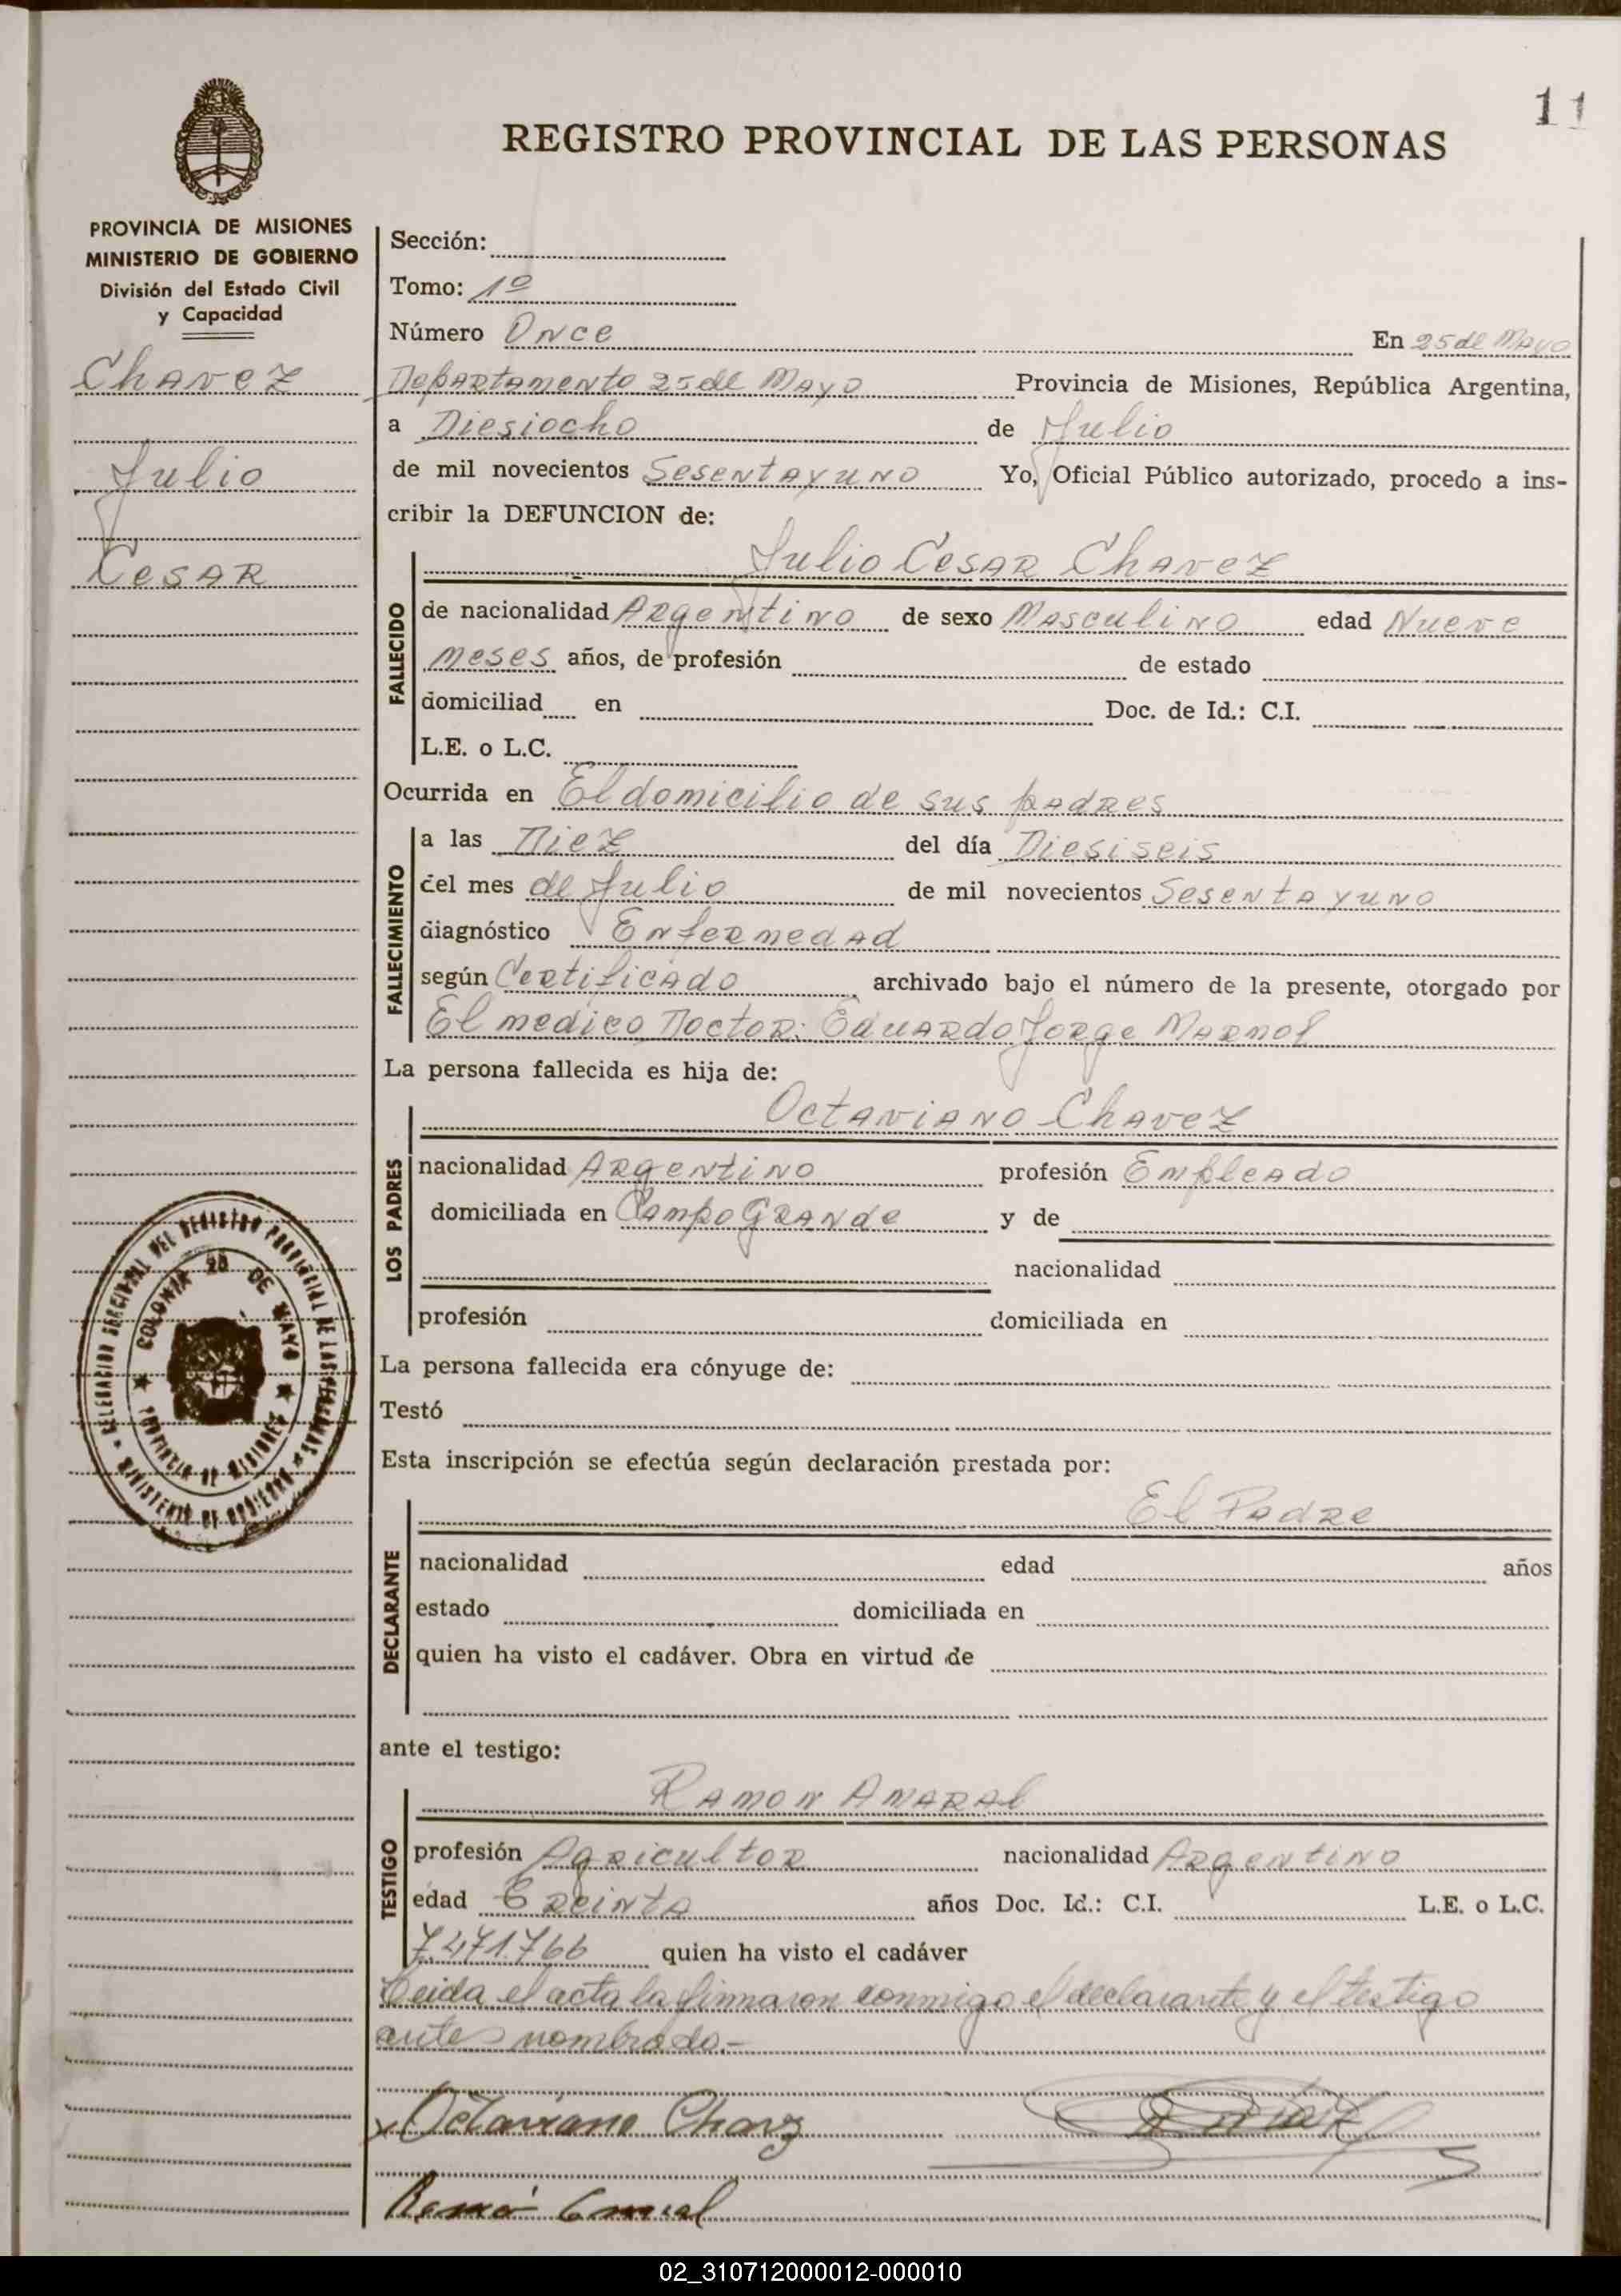 11
REGISTRO PROVINCIAL DE LAS PERSONAS
PROVINCIA DE MISIONES
MINISTERIO DE GOBIERNO
División del Estado Civil
y Capacidad
Chavez
Julio
Cesar
Sección:
Tomo: 1º
Número Once En 25 de Mayo
Departamento 25 de Mayo Provincia de Misiones, República Argentina,
a Diesiocho de Julio
de mil novecientos Sesenta y uno Yo, Oficial Público autorizado, procedo a ins-
cribir la DEFUNCION de:
Julio Cesar Chavez
FALLECIDO
de nacionalidad Argentino de sexo Masculino edad Nueve
meses años, de profesión de estado
domiciliad en Doc. de Id.: C.I.
L.E. o L.C.
Ocurrida en El domicilio de sus padres
FALLECIMIENTO
a las Diez del día Diesiseis
del mes de Julio de mil novecientos Sesenta y uno
diagnóstico Enfermedad
según Certificado archivado bajo el número de la presente, otorgado por
El medico Doctor: Eduardo Jorge Marmol
La persona fallecida es hija de:
Octaviano Chavez
LOS PADRES
nacionalidad Argentino profesión Empleado
domiciliada en Campo Grande y de
nacionalidad
profesión domiciliada en
La persona fallecida era cónyuge de:
Testó
Esta inscripción se efectúa según declaración prestada por:
El Padre
DECLARANTE
nacionalidad edad años
estado domiciliada en
quien ha visto el cadáver. Obra en virtud de
ante el testigo:
Ramon Amaral
TESTIGO
profesión Agricultor nacionalidad Argentino
edad Treinta años Doc. Id.: C.I. L.E. o L.C.
7.471.766 quien ha visto el cadáver
Leida el acta la firmaron conmigo el declarante y el testigo
antes nombrado.-
x Octaviano Chavz
DELEGACION SECCIONAL DEL REGISTRO PROVINCIAL DE LAS PERSONAS
MINISTERIO DE GOBIERNO
COLONIA 25 DE MAYO
PROVINCIA DE MISIONES
02_310712000012-000010